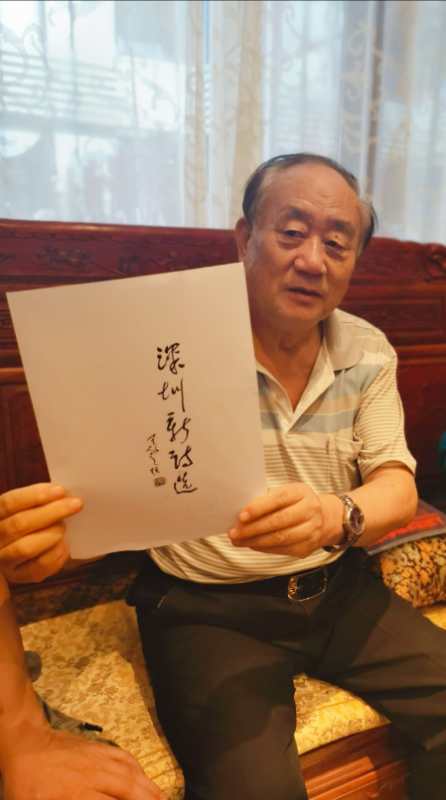 深圳新诗选